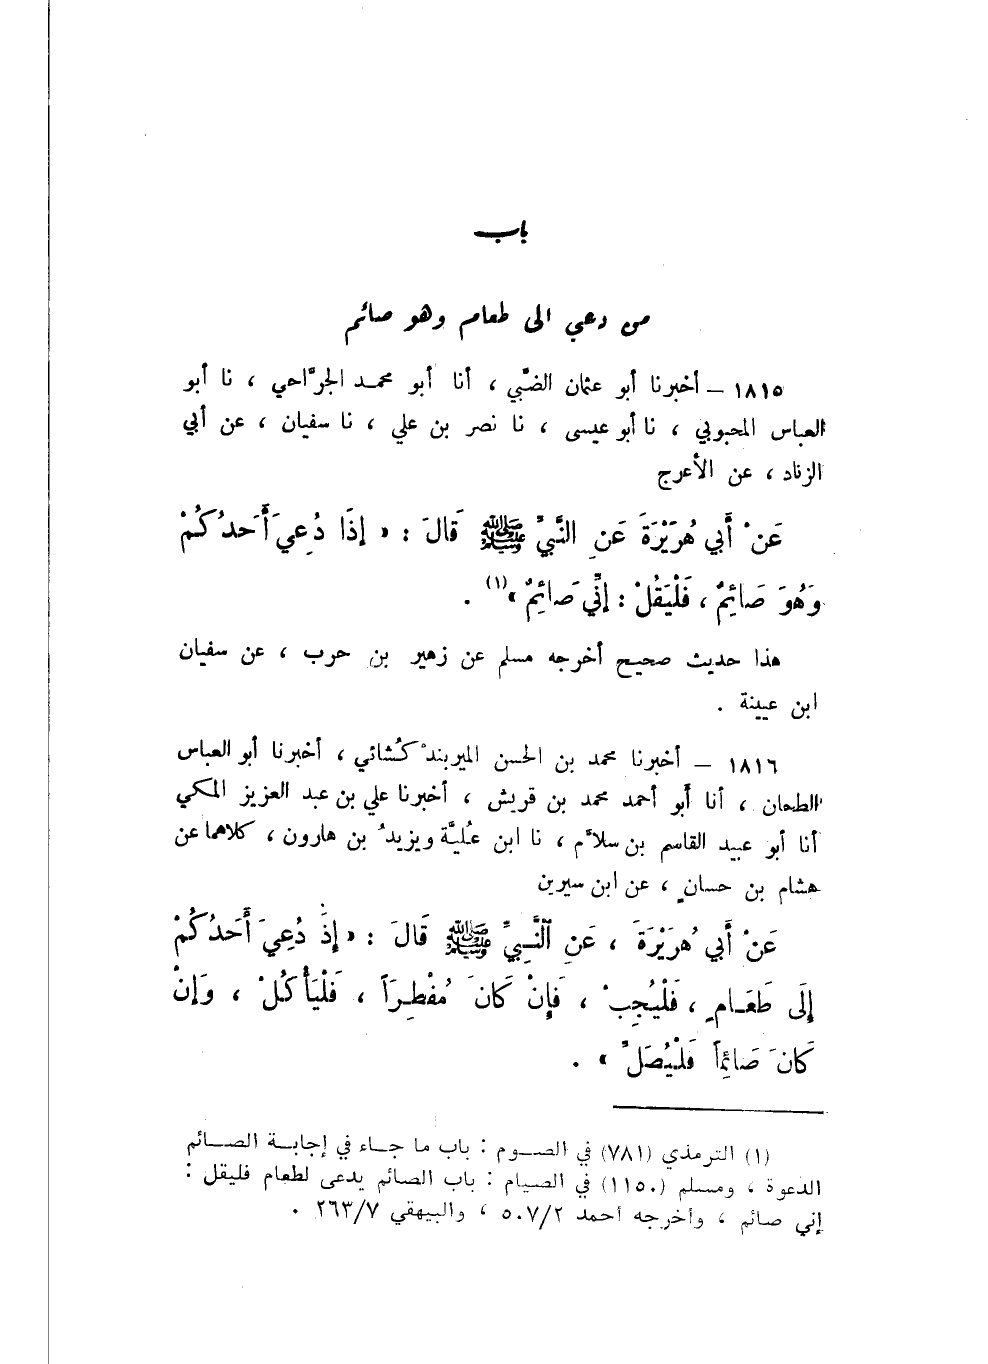 باب
من دعي الى طعام وهو صائم
١٨١٥ – أخبرنا أبو عثمان الضَّبي ، أنا أبو محمد الجرَّاحي ، نا أبو
العباس المحبوبي ، نا أبو عيسى ، نا نصر بن علي ، نا سفيان ، عن أبي
الزناد ، عن الأعرج
عَنْ أَبي هُرَيْرَةَ عَنِ النَّبيِّ ﷺ قَالَ : « إِذَا دُعِيَ أَحَدُكُمْ
وَهُوَ صَائِمٌ ، فَلْيَقُلْ : إِنِّي صَائِمٌ »(١) .
هذا حديث صحيح أخرجه مسلم عن زهير بن حرب ، عن سفيان
ابن عيينة .
١٨١٦ – أخبرنا محمد بن الحسن الميربندْ كُشائي ، أخبرنا أبو العباس
الطحان ، أنا أبو أحمد محمد بن قريش ، أخبرنا علي بن عبد العزيز المكي
أنا أبو عبيد القاسم بن سلاَّم ، نا ابن عُليَّة ويزيدُ بن هارون ، كلاهما عن
هشام بن حسانٍ ، عن ابن سيرين
عَنْ أَبي هُرَيْرَةَ ، عَنِ النَّبِيِّ ﷺ قَالَ : « إِذَ دُعِيَ أَحَدُكُمْ
إِلَى طَعَامٍ ، فَلْيُجِبْ ، فَإِنْ كَانَ مُفْطِرَاً ، فَلْيَأْكُلْ ، وَإِنْ
كَانَ صَائِماً فَلْيُصَلِّ » .
(١) الترمذي (٧٨١) في الصوم : باب ما جاء في إجابة الصائم
الدعوة ، ومسلم (١١٥٠) في الصيام : باب الصائم يدعى لطعام فليقل :
إني صائم ، وأخرجه أحمد ٥٠٧/٢ ، والبيهقي ٢٦٣/٧ .